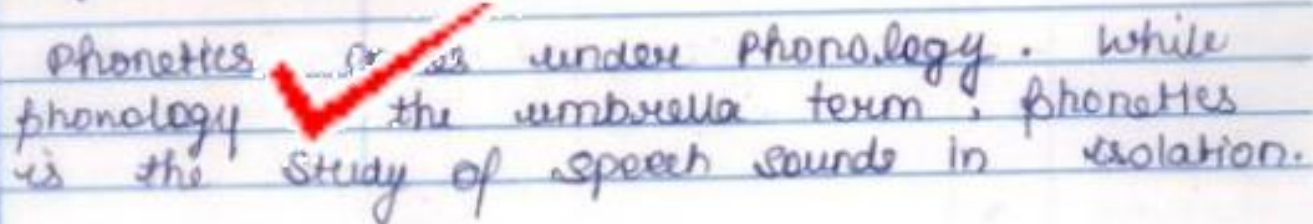 Phonetics under Phonology. While
phonology the umbrella term, phonetics
is the study of speech sounds in isolation.